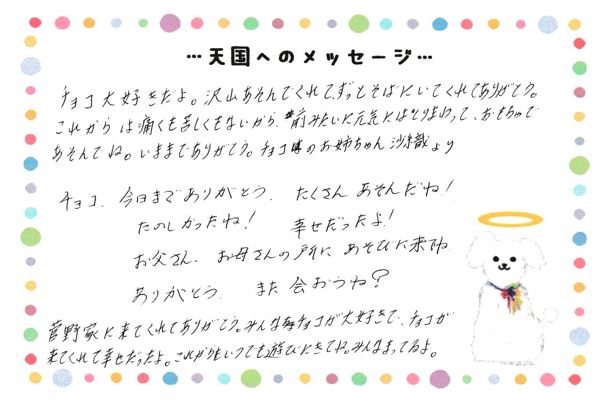 …天国へのメッセージ…
チョコ大好きだよ。沢山あそんでくれて、ずっとそばにいてくれてありがとう。
これからは痛くも苦しくもないから、前みたいに元気にはしりまわって、おもちゃで
あそんでね。いままでありがとう。チョコのお姉ちゃん 沙織より
チョコ、今日までありがとう、たくさんあそんだね!
たのしかったね! 幸せだったよ!
お父さん、お母さんの所に あそびに来てね
ありがとう、また会おうね?
菅野家に来てくれてありがとう。みんなチョコが大好きで、チョコが
来てくれて幸せだったよ。これからもいつでも遊びにきてね。みんなまってるよ。